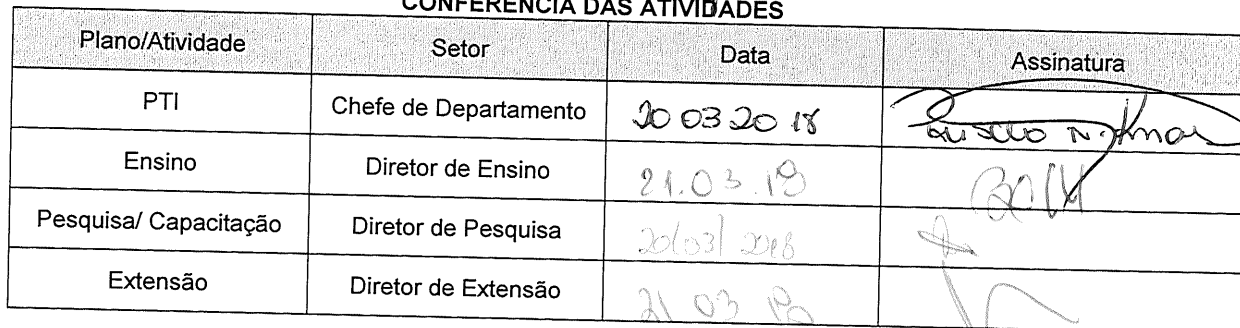 CONFERÊNCIA DAS ATIVIDADES
Plano/Atividade Setor Data Assinatura
PTI Chefe de Departamento 20 03 20 18
Ensino Diretor de Ensino 21.03.18
Pesquisa/ Capacitação Diretor de Pesquisa 20/03/2018
Extensão Diretor de Extensão 21 03 18